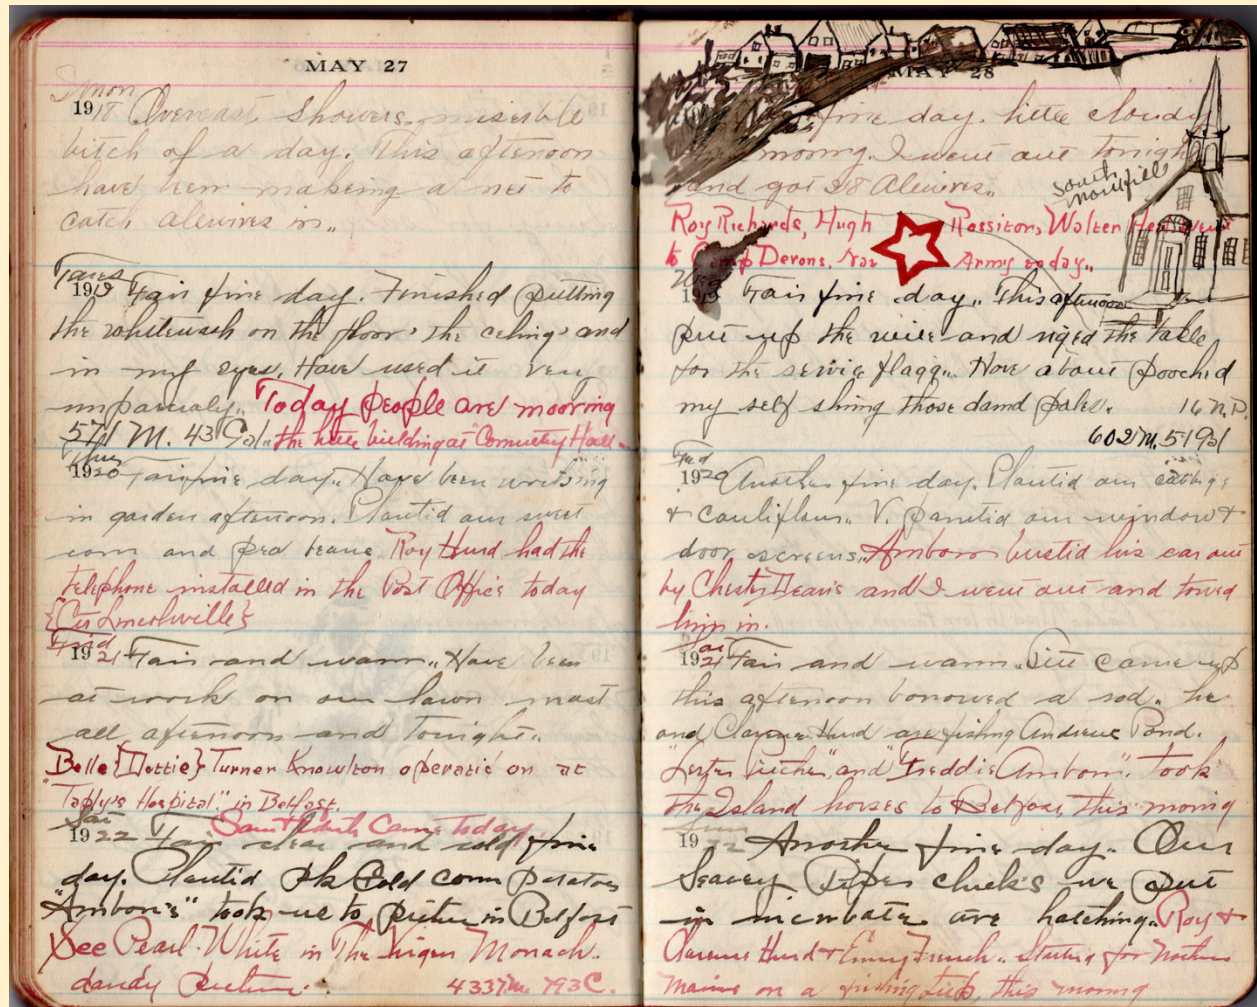 MAY 27
1918 Overcast, Showers. miserble
bitch of a day. This afternoon
have been makeing a net to
catch alewives in..
Tues
1919 Fair fine day. Finished putting
the whitewash on the floor, the celings and
in my eyes. Have used it very
impartialy.. Today people are mooring
571 M. 43 Gal.. the little building at "Comunity Hall"..
Thur
1920 Fair fine day.. Have been working
in garden afternoon. Plantid our sweet
corn and pea beans. Roy Hurd had the
telephone installed in the Post Office today
{Ctr Lincolnville}
Frid
1921 Fair and warm.. Have been
at work on our lawn most
all afternoon and tonight..
"Belle {Dottie} Turner Knowlton operatid on at
Taply's Hospital" in Belfast.
Sat Came today
1922 Fair clear and cold fine
day. Plantid Pk Gold corn potatoes
"Ambon's" took us to picture in Belfast
See Pearl White in The Monach.
dandy Picture. 4337 M. 793 C.
MAY 28
fine day. little cloudy
morng. I went out tonight
and got 28 Alewives..
South Montfille
Roy Richards, Hugh Rossiton, Walter went
to Camp Devons. Nat Army today..
1919 Fair fine day.. This afternoon
put up the wire and riged the table
for the servic flagg.. Have about pooched
my self shing those damd pales. 16 N.P.
602 M. 519
Frid
1920 Another fine day. Plantid our cabbige
+ Cauliflour.. V. paintid our window +
door screens. Ambon bustid his car out
by Chester Dean's and I went out and towed
him in.
Sat
1921 Fair and warm.. came up
this afternoon borrowed a rod.. he
and Clarence Hurd are fishing Andrews Pond.
"Lester " and "Freddie Ambon". took
the Island horses to Belfast this morng
1922 Another fine day.. Our
Seavey Piper chick's we put
in incubater are hatching. Roy +
Clarence Hurd + French.. Started for Northern
Maine on a fishing trip, this morng